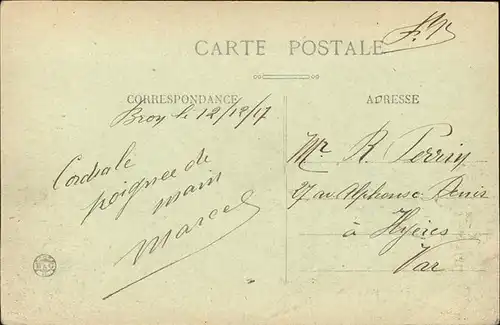 F. M
CARTE POSTALE
CORRESPONDANCE
ADRESSE
Bron le 12/12/17
Cordiale
poignée de
main
Marcel
Mr R. Perrin
27 av. Alphonse Denis
à Hyères
Var